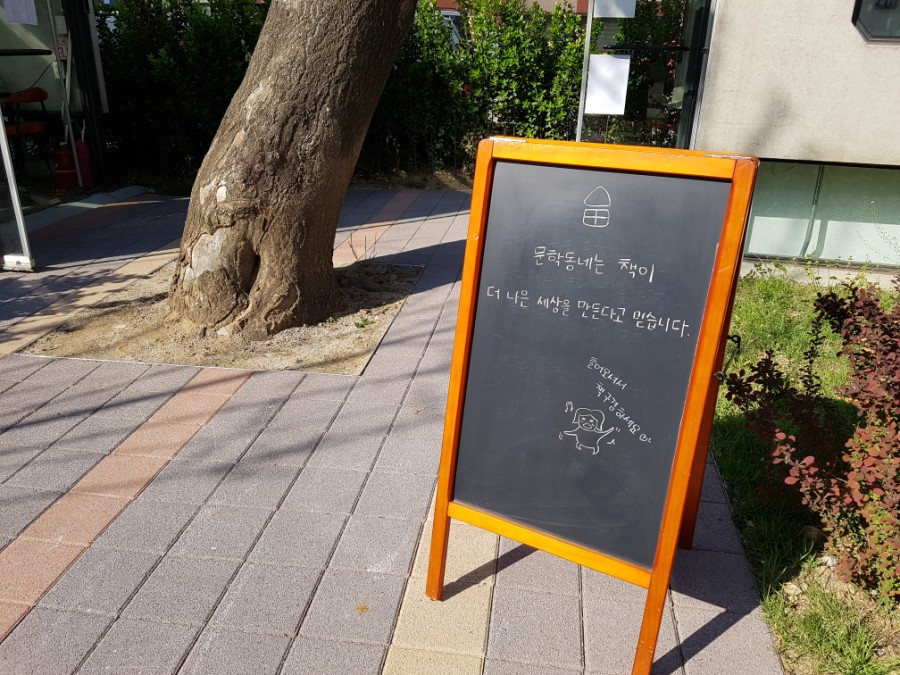 문학동네는 책이
더 나은 세상을 만든다고 믿습니다.
들어오셔서
책구경하세요